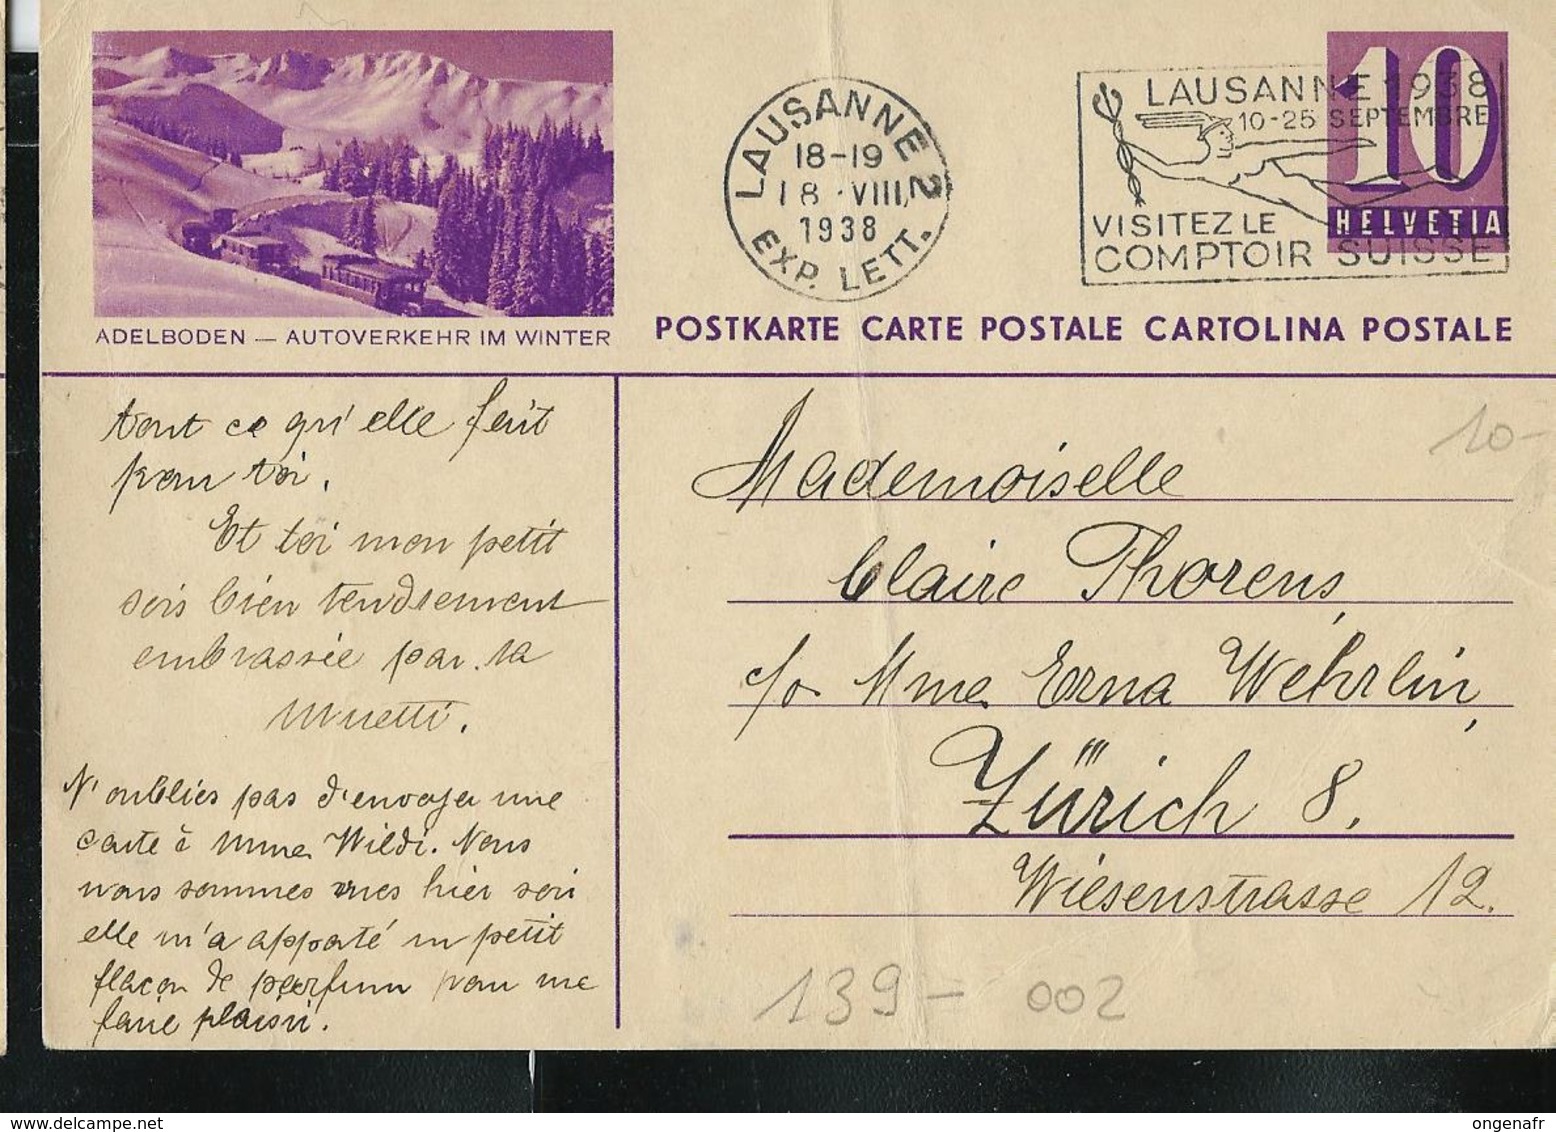 LAUSANNE 2
18-19
18.VIII.
1938
EXP. LETT.
LAUSANNE 1938
10-25 SEPTEMBRE
VISITEZ LE
COMPTOIR SUISSE
10
HELVETIA
ADELBODEN — AUTOVERKEHR IM WINTER
POSTKARTE CARTE POSTALE CARTOLINA POSTALE
tout ce qu'elle fait
pour toi.
Et toi mon petit
sois bien tendrement
embrassée par ta
Muetti.
N'oublies pas d'envoyer une
carte à Mme Wildi. Nous
nous sommes vues hier soir
elle m'a apporté un petit
flacon de parfum pour me
faire plaisir.
10-
Mademoiselle
Claire Thorens,
c/o Mme Erna Wehrlin,
Zürich 8.
Wiesenstrasse 12.
139-002
ongenafr